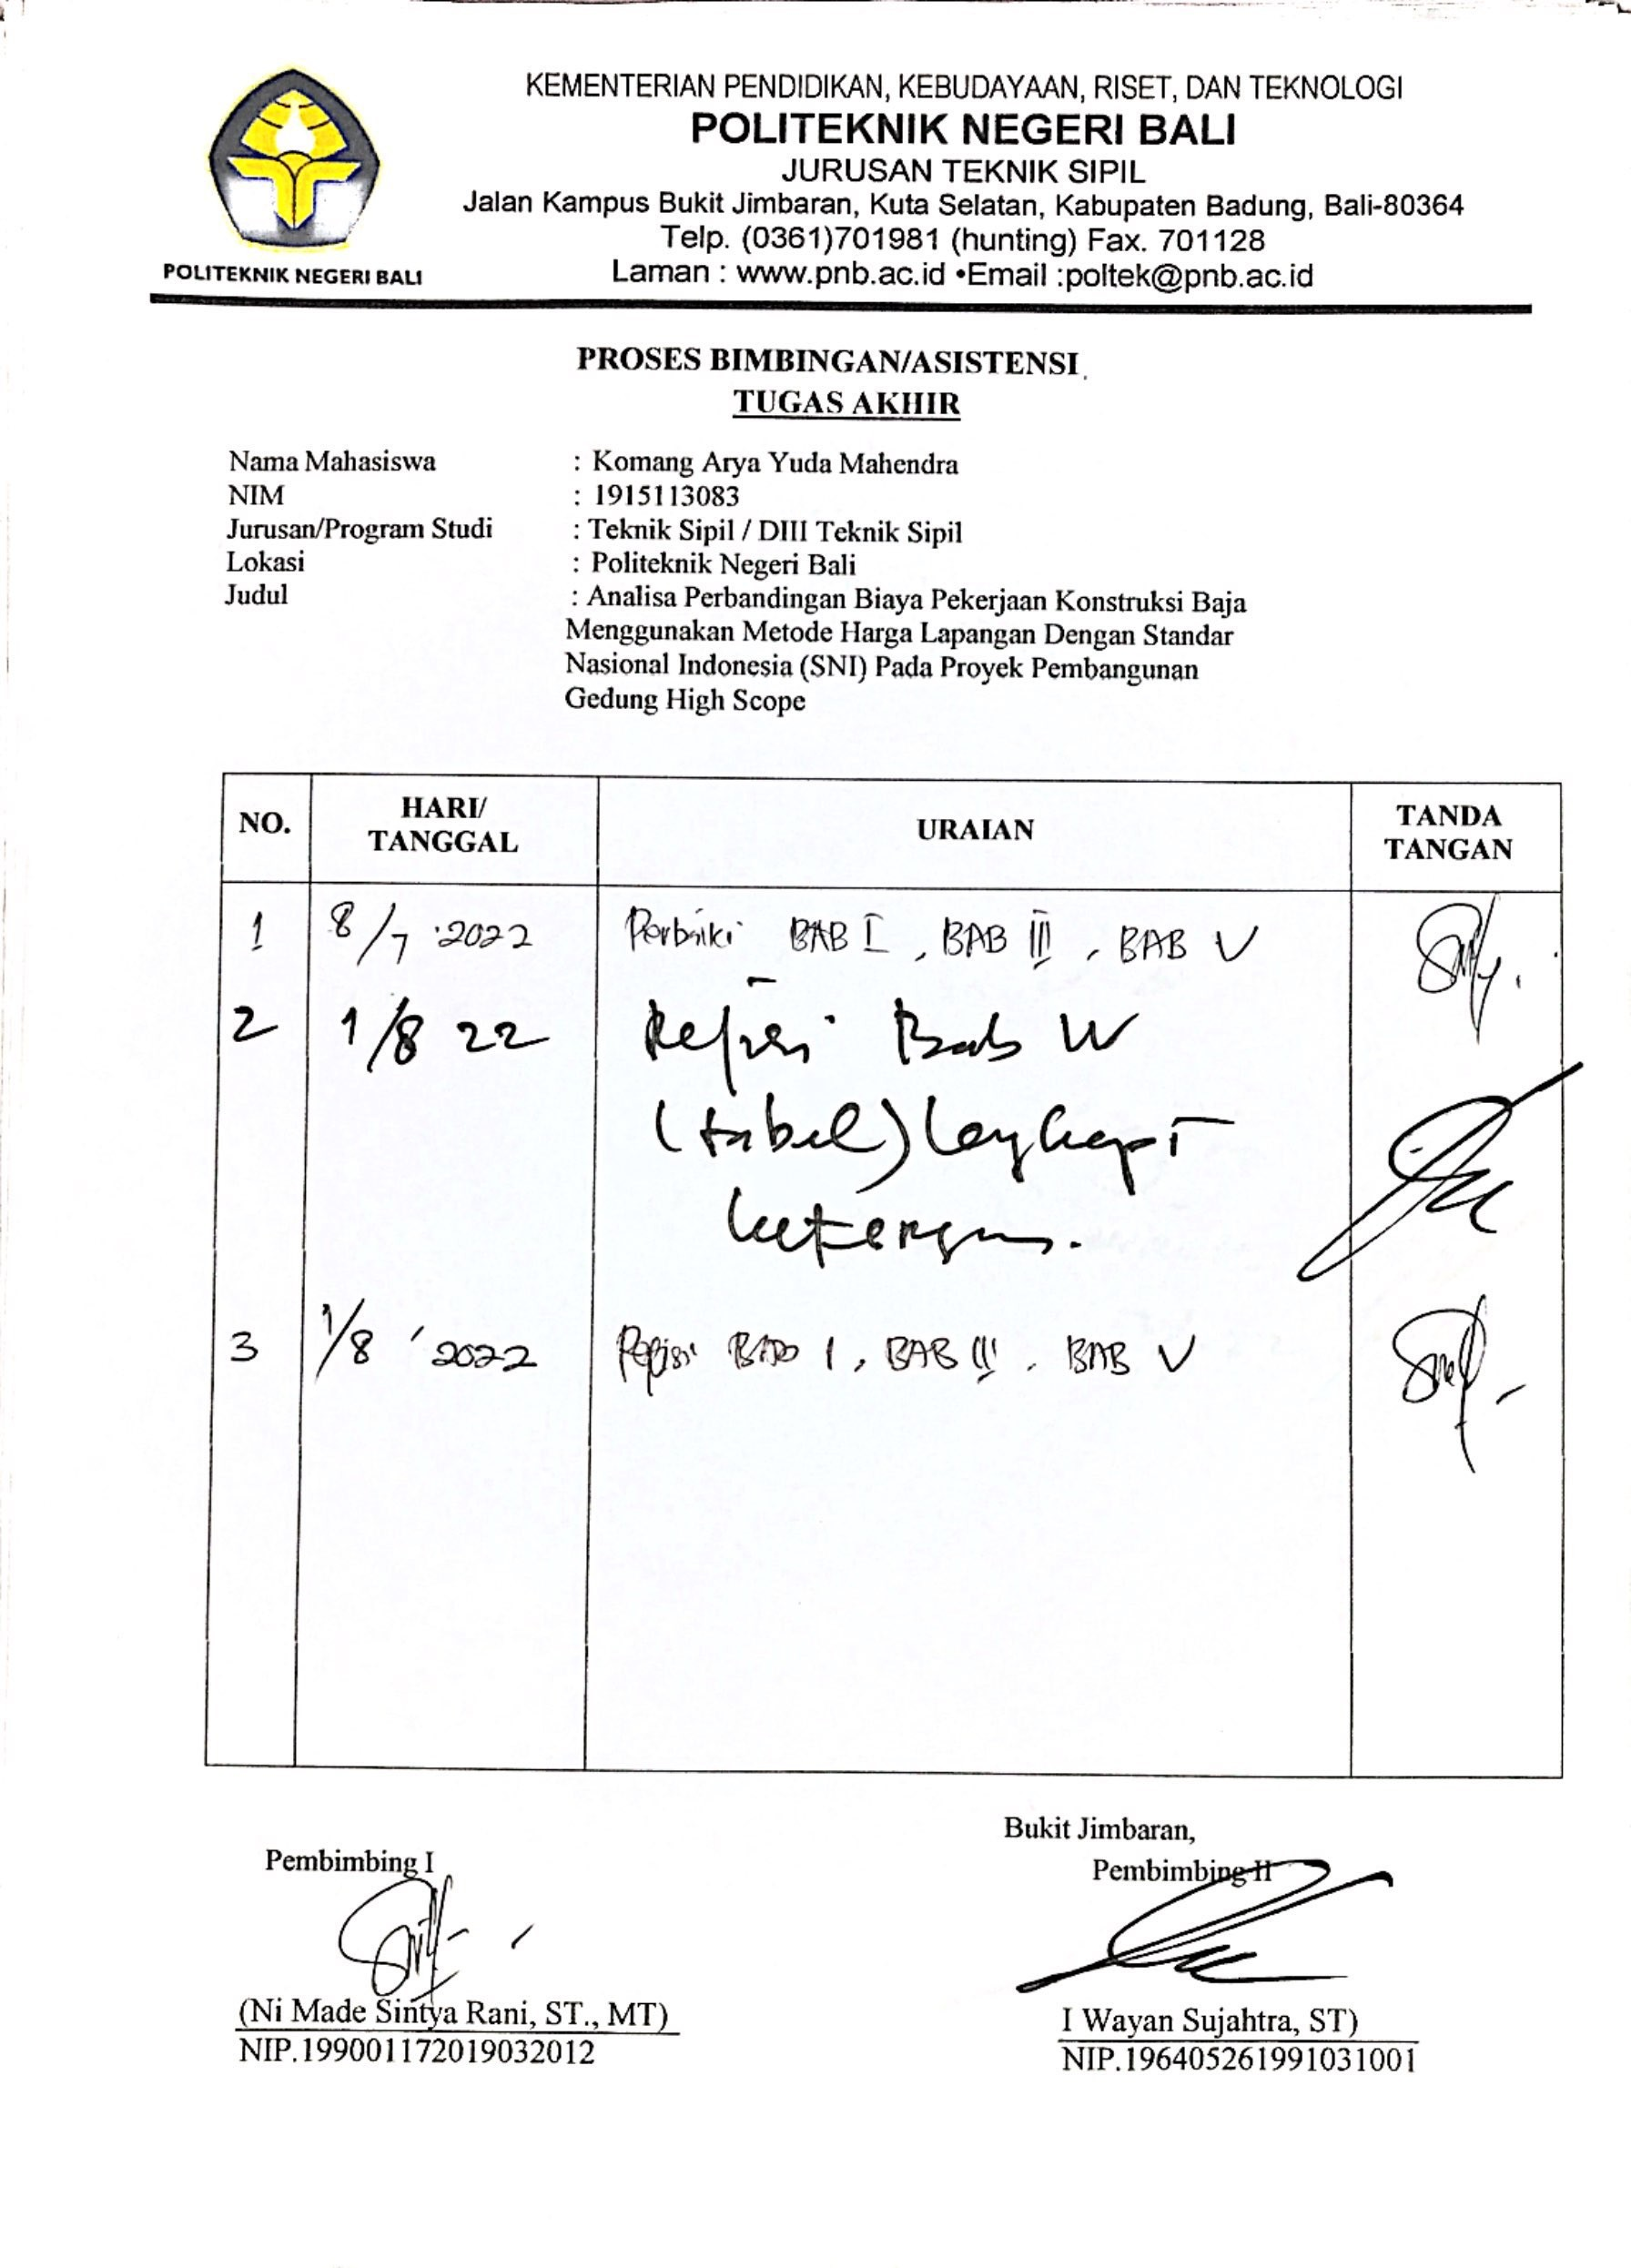 KEMENTERIAN PENDIDIKAN, KEBUDAYAAN, RISET, DAN TEKNOLOGI
POLITEKNIK NEGERI BALI
JURUSAN TEKNIK SIPIL
Jalan Kampus Bukit Jimbaran, Kuta Selatan, Kabupaten Badung, Bali-80364
Telp. (0361)701981 (hunting) Fax. 701128
Laman : www.pnb.ac.id •Email :poltek@pnb.ac.id
POLITEKNIK NEGERI BALI
PROSES BIMBINGAN/ASISTENSI
TUGAS AKHIR
Nama Mahasiswa : Komang Arya Yuda Mahendra
NIM : 1915113083
Jurusan/Program Studi : Teknik Sipil / DIII Teknik Sipil
Lokasi : Politeknik Negeri Bali
Judul : Analisa Perbandingan Biaya Pekerjaan Konstruksi Baja
Menggunakan Metode Harga Lapangan Dengan Standar
Nasional Indonesia (SNI) Pada Proyek Pembangunan
Gedung High Scope
NO. HARI/ TANGGAL URAIAN TANDA TANGAN
1 8/7 2022 Perbaiki BAB I, BAB III, BAB V
2 1/8 22 Bab IV
(tabel) lengkapi
keterangan.
3 1/8 '2022 BAB I, BAB III, BAB V
Bukit Jimbaran,
Pembimbing I Pembimbing II
(Ni Made Sintya Rani, ST., MT) I Wayan Sujahtra, ST)
NIP.199001172019032012 NIP.196405261991031001